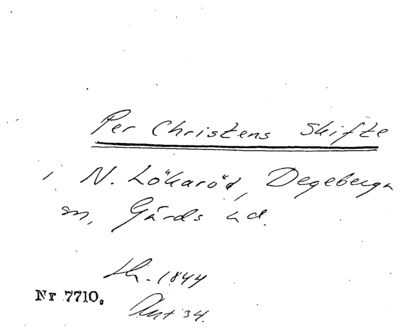 Per Christens Skifte
i N. Lökaröd, Degeberga
sn, Gärds hd.
1844
Nr 7710.
34.